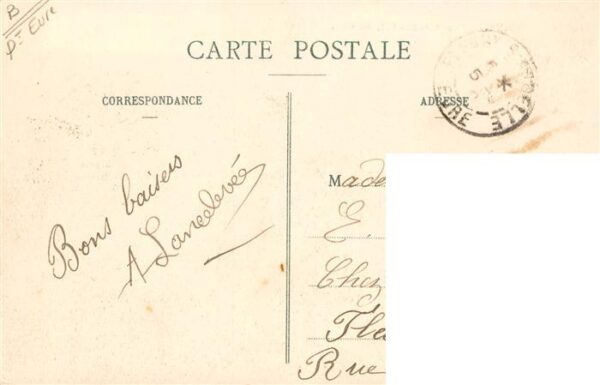 B
pt Eure
CARTE POSTALE
CORRESPONDANCE
ADRESSE
EURE
Bons baisers
A Lancelevée
Made
E.
Chez
Fle
Rue